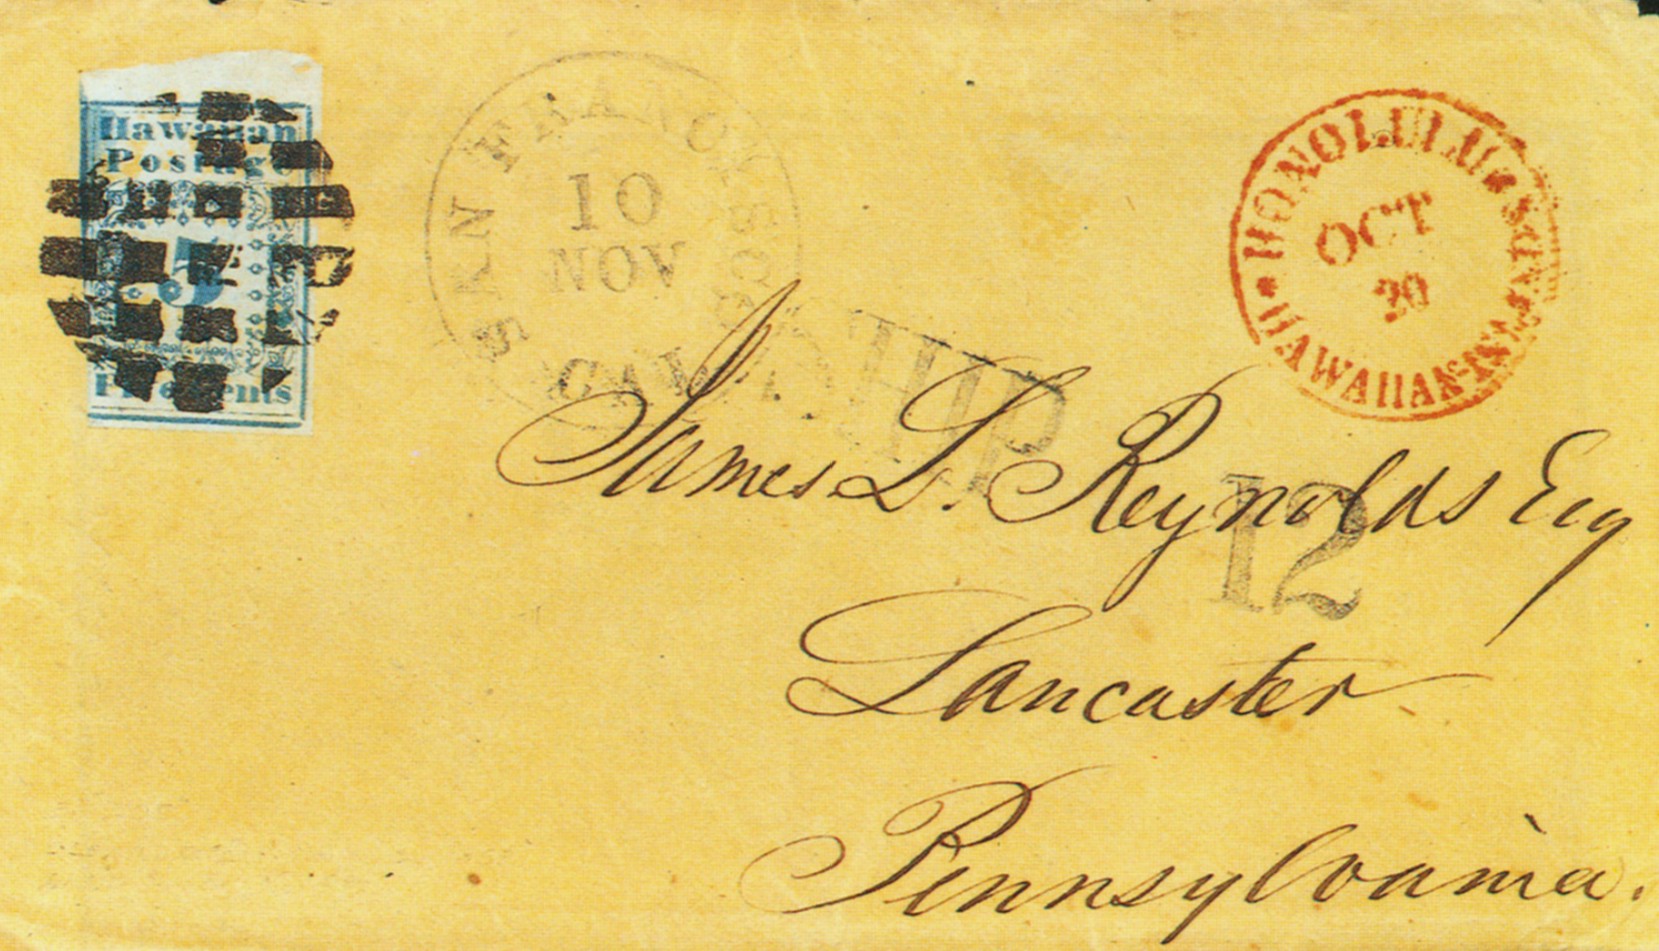 Hawaiian
Postage
5
Five Cents
SAN FRANCISCO
10
NOV
CAL
SHIP
HONOLULU * SANDWICH
OCT
20
* HAWAIIAN
12
James L. Reynolds Esq
Lancaster
Pennsylvania.